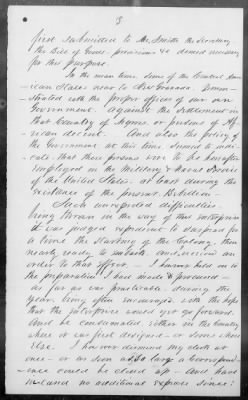 3
first submitted to Mr. Smith the Secretary
the Bill of Goods - provisions &c deemed necessary
for this purpose.
In the mean time, Some of the Central Amer
ican States near to New Granada. Remon-
strated with the proper officer of our own
Government. Against the Settlement in
that Country of Negroes, or persons of Af-
rican decent. And also the policy of
the Government at this time, Seemed to indi-
cate that these persons were to be hereafter
employed in the Military & Naval Service
of the United States, at least during the
existence of the present Rebellion.
Such unexpected difficulties
being thrown in the way of this enterprise
it was judged expedient to suspend for
a time the Starting of the Colony, then
nearly ready to embark and received an
order to that effect. I however held on to
the preparation I had made &
as far as was practicable, during the
year, being often encouraged with the hope
that the enterprise would yet go forward.
And be consumated either in the Country
where it was first designed - or some where
else. I however dismissed my clerks at
once - or as soon as so large a correspond-
ence could be closed up - And have
no additional expense since: